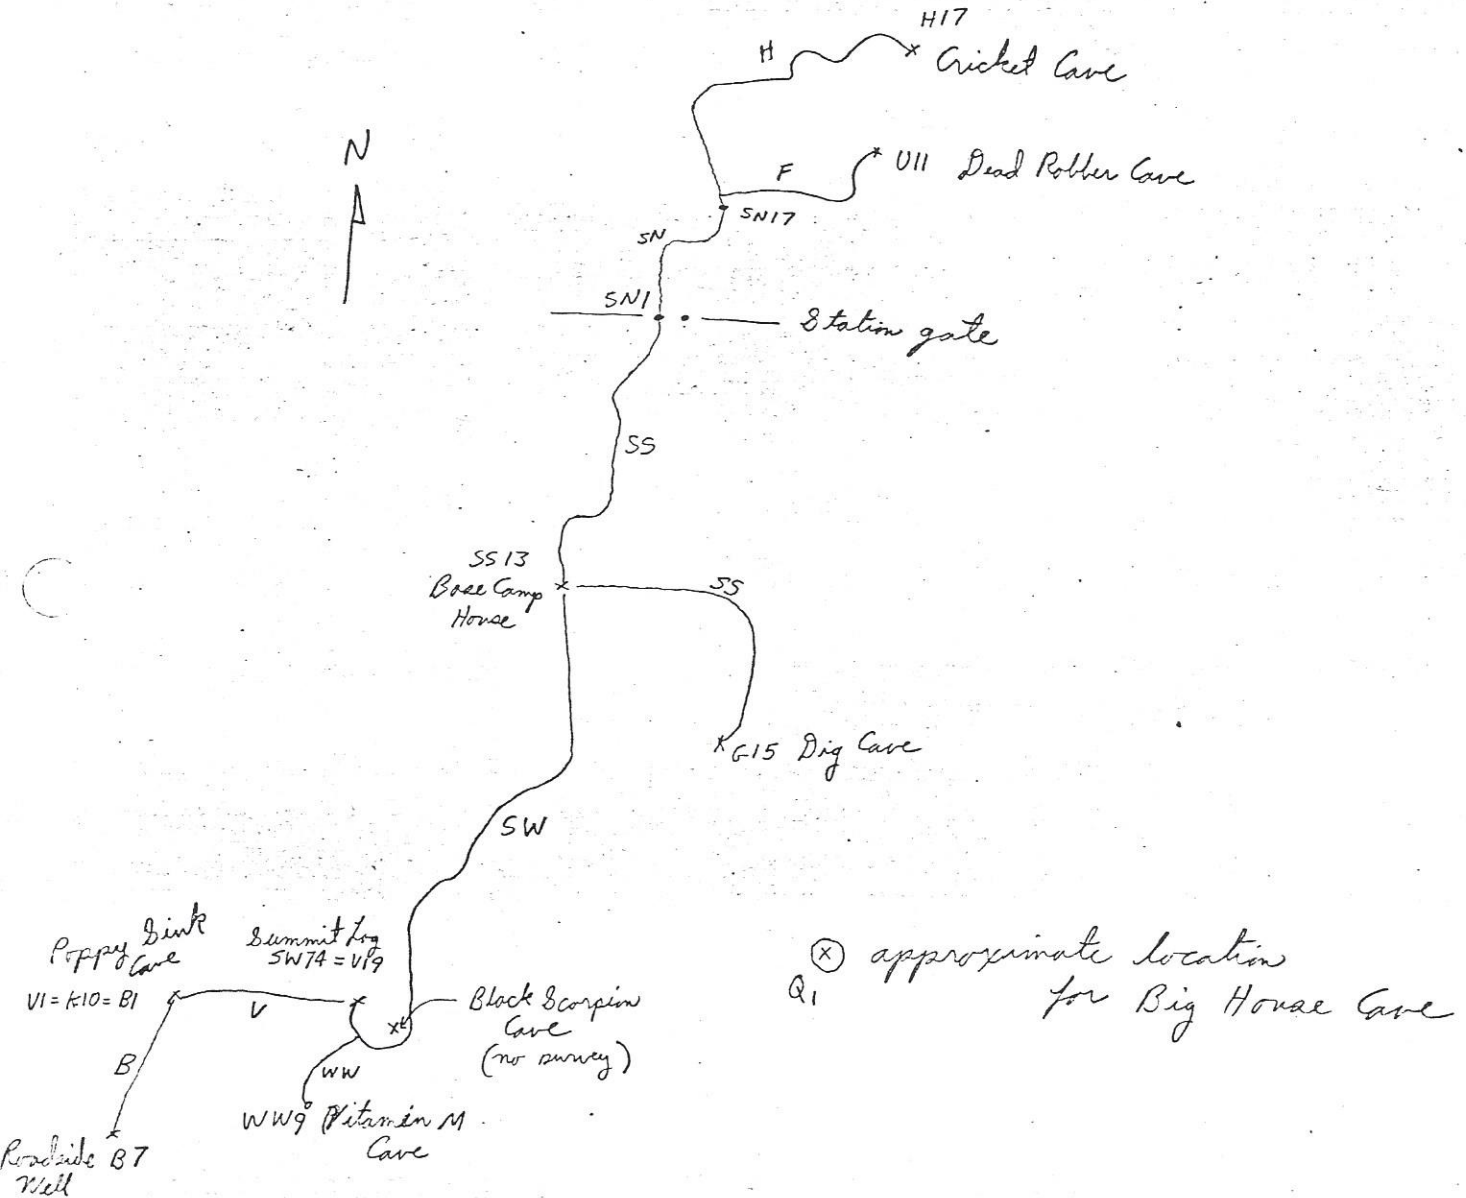 H17
H
Cricket Cave
N
U11 Dead Robber Cave
F
SN17
SN
SN1
Station gate
SS
SS13
Base Camp
House
SS
G15 Dig Cave
SW
Poppy Sink
Cave
V1 = K10 = B1
Summit Log
SW74 = V19
V
Black Scorpion
Cave
(no survey)
B
WW
WW9 Vitamin M
Cave
Roadside B7
Well
X approximate location
Q1
for Big House Cave